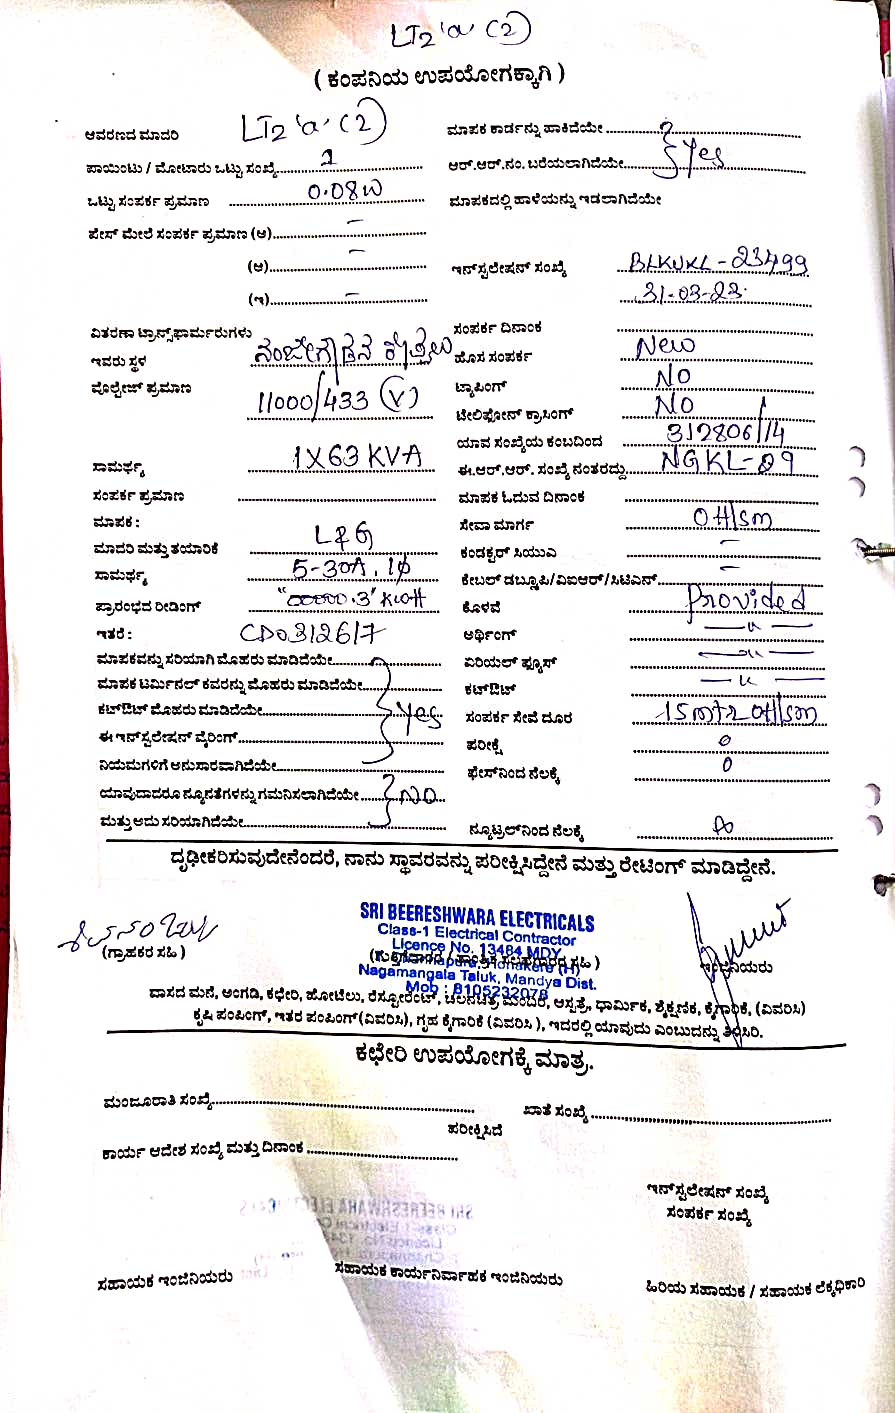 LT2 'a' (2)
( ಕಂಪನಿಯ ಉಪಯೋಗಕ್ಕಾಗಿ )
ಆವರಣದ ಮಾದರಿ LT2 'a' (2)
ಮಾಪಕ ಕಾರ್ಡನ್ನು ಹಾಕಿದೆಯೇ
ಪಾಯಿಂಟು / ಮೋಟಾರು ಒಟ್ಟು ಸಂಖ್ಯೆ 1
ಆರ್.ಆರ್.ನಂ. ಬರೆಯಲಾಗಿದೆಯೇ Yes
ಒಟ್ಟು ಸಂಪರ್ಕ ಪ್ರಮಾಣ 0.08W
ಮಾಪಕದಲ್ಲಿ ಹಾಳೆಯನ್ನು ಇಡಲಾಗಿದೆಯೇ
ಪೇಸ್ ಮೇಲೆ ಸಂಪರ್ಕ ಪ್ರಮಾಣ (ಅ) –
(ಆ) –
ಇನ್‌ಸ್ಟಲೇಷನ್ ಸಂಖ್ಯೆ BLKUKL-23499
(ಇ) –
31-03-23
ವಿತರಣಾ ಟ್ರಾನ್ಸ್‌ಫಾರ್ಮರುಗಳು
ಸಂಪರ್ಕ ದಿನಾಂಕ
ಇವರು ಸ್ಥಳ ನಂಜೇಗೌಡನ
ಹೊಸ ಸಂಪರ್ಕ New
ವೊಲ್ಟೇಜ್ ಪ್ರಮಾಣ 11000/433 (V)
ಟ್ಯಾಪಿಂಗ್ NO
ಟೆಲಿಫೋನ್ ಕ್ರಾಸಿಂಗ್ NO
ಯಾವ ಸಂಖ್ಯೆಯ ಕಂಬದಿಂದ 312806/14
ಸಾಮರ್ಥ್ಯ 1X63 KVA
ಈ.ಆರ್.ಆರ್. ಸಂಖ್ಯೆ ನಂತರದ್ದು NGKL-09
ಸಂಪರ್ಕ ಪ್ರಮಾಣ
ಮಾಪಕ ಓದುವ ದಿನಾಂಕ
ಮಾಪಕ :
ಸೇವಾ ಮಾರ್ಗ OH/sm
ಮಾದರಿ ಮತ್ತು ತಯಾರಿಕೆ L&G
ಕಂಡಕ್ಟರ್ ಸಿಯುಎ –
ಸಾಮರ್ಥ್ಯ 5-30A, 1φ
ಕೇಬಲ್ ಡಬ್ಲ್ಯೂಪಿ/ವಿಐಆರ್/ಸಿಟಿಎಸ್ –
ಪ್ರಾರಂಭದ ರೀಡಿಂಗ್ "00000.3" KWH
ಕೊಳವೆ Provided
ಇತರೆ : CD0312617
ಅರ್ಥಿಂಗ್ — u —
ಮಾಪಕವನ್ನು ಸರಿಯಾಗಿ ಮೊಹರು ಮಾಡಿದೆಯೇ
ಏರಿಯಲ್ ಫ್ಯೂಸ್ — u —
ಮಾಪಕ ಟರ್ಮಿನಲ್ ಕವರನ್ನು ಮೊಹರು ಮಾಡಿದೆಯೇ
ಕಟ್‌ಔಟ್ — u —
ಕಟ್‌ಔಟ್ ಮೊಹರು ಮಾಡಿದೆಯೇ Yes
ಸಂಪರ್ಕ ಸೇವೆ ದೂರ 15mtr OH/sm
ಈ ಇನ್‌ಸ್ಟಲೇಷನ್ ವೈರಿಂಗ್
ಪರೀಕ್ಷೆ 0
ನಿಯಮಗಳಿಗೆ ಅನುಸಾರವಾಗಿದೆಯೇ
ಫೇಸ್‌ನಿಂದ ನೆಲಕ್ಕೆ 0
ಯಾವುದಾದರೂ ನ್ಯೂನತೆಗಳನ್ನು ಗಮನಿಸಲಾಗಿದೆಯೇ NO
ಮತ್ತು ಅದು ಸರಿಯಾಗಿದೆಯೇ
ನ್ಯೂಟ್ರಲ್‌ನಿಂದ ನೆಲಕ್ಕೆ
ದೃಢೀಕರಿಸುವುದೇನೆಂದರೆ, ನಾನು ಸ್ಥಾವರವನ್ನು ಪರೀಕ್ಷಿಸಿದ್ದೇನೆ ಮತ್ತು ರೇಟಿಂಗ್ ಮಾಡಿದ್ದೇನೆ.
SRI BEERESHWARA ELECTRICALS
Class-1 Electrical Contractor
Licence No. 13484 MDY
(ಗ್ರಾಹಕರ ಸಹಿ )
Honakere (H)
ಇಂಜಿನಿಯರು
Nagamangala Taluk, Mandya Dist.
Mob : 8105232078
ವಾಸದ ಮನೆ, ಅಂಗಡಿ, ಕಛೇರಿ, ಹೋಟೆಲು, ರೆಸ್ಟೋರೆಂಟ್, ಚಲನಚಿತ್ರ ಮಂದಿರ, ಆಸ್ಪತ್ರೆ, ಧಾರ್ಮಿಕ, ಶೈಕ್ಷಣಿಕ, ಕೈಗಾರಿಕೆ, (ವಿವರಿಸಿ)
ಕೃಷಿ ಪಂಪಿಂಗ್, ಇತರ ಪಂಪಿಂಗ್ (ವಿವರಿಸಿ), ಗೃಹ ಕೈಗಾರಿಕೆ (ವಿವರಿಸಿ ), ಇದರಲ್ಲಿ ಯಾವುದು ಎಂಬುದನ್ನು ತಿಳಿಸಿರಿ.
ಕಛೇರಿ ಉಪಯೋಗಕ್ಕೆ ಮಾತ್ರ.
ಮಂಜೂರಾತಿ ಸಂಖ್ಯೆ
ಖಾತೆ ಸಂಖ್ಯೆ
ಪರೀಕ್ಷಿಸಿದೆ
ಕಾರ್ಯ ಆದೇಶ ಸಂಖ್ಯೆ ಮತ್ತು ದಿನಾಂಕ
ಇನ್‌ಸ್ಟಲೇಷನ್ ಸಂಖ್ಯೆ
ಸಂಪರ್ಕ ಸಂಖ್ಯೆ
ಸಹಾಯಕ ಇಂಜಿನಿಯರು
ಸಹಾಯಕ ಕಾರ್ಯನಿರ್ವಾಹಕ ಇಂಜಿನಿಯರು
ಹಿರಿಯ ಸಹಾಯಕ / ಸಹಾಯಕ ಲೆಕ್ಕಾಧಿಕಾರಿ